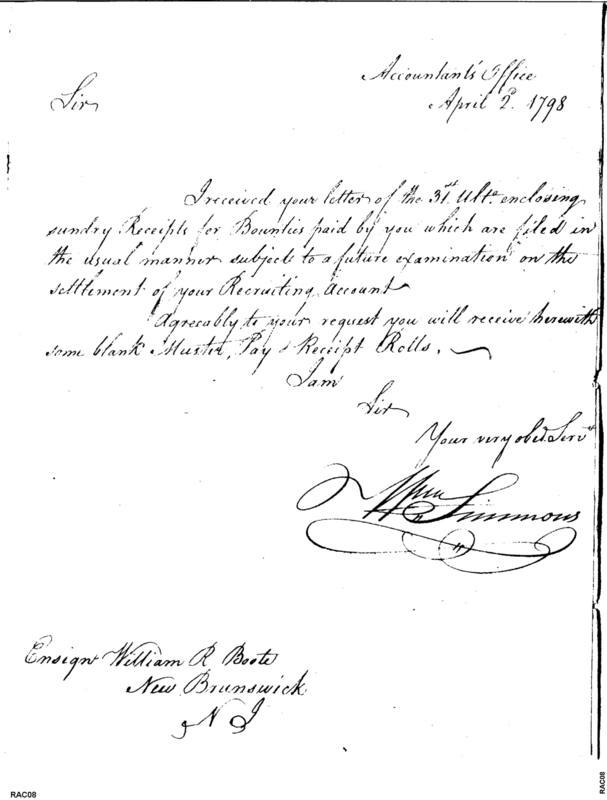 Accountant's Office
Sir
April 2d. 1798
I received your letter of the 31st Ulto. enclosing
sundry Receipts for Bounties paid by you which are filed in
the usual manner subject to a future examination on the
settlement of your Recruiting Account
Agreeably to your request you will receive herewith
some blank Muster, Pay & Receipt Rolls.
I am
Sir
Your very obed. Servt
Wm Simmons
Ensign William R Boote
New Brunswick
N J
RAC08
RAC08